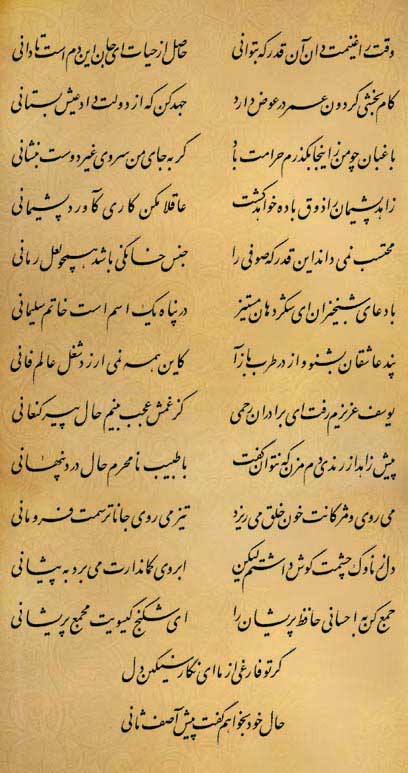 وقت را غنیمت دان آن قدر که بتوانی حاصل از حیات ای جان این دم است تا دانی
کام بخشی گردون عمر در عوض دارد جهد کن که از دولت داد عیش بستانی
باغبان چو من ز اینجا بگذرم حرامت باد گر به جای من سروی غیر دوست بنشانی
زاهد پشیمان را ذوق باده خواهد کشت عاقلا مکن کاری کآورد پشیمانی
محتسب نمی‌داند این قدر که صوفی را جنس خانگی باشد همچو لعل رمانی
با دعای شبخیزان ای شکردهان مستیز در پناه یک اسم است خاتم سلیمانی
پند عاشقان بشنو و از در طرب بازآ کاین همه نمی‌ارزد شغل عالم فانی
یوسف عزیزم رفت ای برادران رحمی کز غمش عجب بینم حال پیر کنعانی
پیش زاهد از رندی دم مزن که نتوان گفت با طبیب نامحرم حال درد پنهانی
می‌روی و مژگانت خون خلق می‌ریزد تیز می‌روی جانا ترسمت فرومانی
دل ز ناوک چشمت گوش داشتم لیکن ابروی کماندارت می‌برد به پیشانی
جمع کن به احسانی حافظ پریشان را ای شکنج گیسویت مجمع پریشانی
گر تو فارغی از ما ای نگار سنگین دل
حال خود بخواهم گفت پیش آصف ثانی